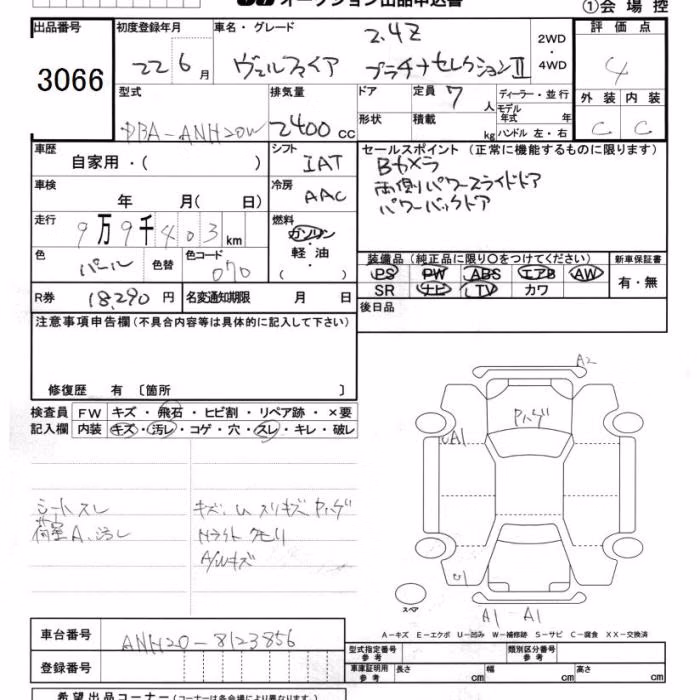 オークション出品申込書
①会場控
出品番号 初度登録年月 車名・グレード 評価点
3066
22 6月 ヴェルファイア 2.4Z プラチナセレクションⅡ 2WD・4WD 4
型式 排気量 ドア 定員 7人 ディーラー・並行 外装 内装
DBA-ANH20W 2400cc 形状 積載 kg モデル年式 年 ハンドル 左・右 C C
車歴 自家用・( ) シフト IAT セールスポイント (正常に機能するものに限ります)
Bカメラ
両側パワースライドドア
パワーバックドア
車検 年 月( 日) 冷房 AAC
走行 9万9千403km 燃料 ガソリン・軽油・( )
色 パール 色替 色コード 070
装備品 (純正品に限り○をつけてください) 新車保証書
PS PW ABS エアB AW 有・無
SR ナビ TV カワ
R券 18,290円 名変通知期限 月 日 後日品
注意事項申告欄(不具合内容等は具体的に記入して下さい)
修復歴 有 〔箇所 〕
検査員記入欄 FW キズ・飛石・ヒビ割・リペア跡・×要
内装 キズ・汚レ・コゲ・穴・スレ・キレ・破レ
シートスレ
荷室A、汚レ
キズ、 スリキズ Pハゲ
Hライト クモリ
A/Wキズ
A2
Pハゲ
A1
スペア
A1 A1
A-キズ E-エクボ U-凹み W-補修跡 S-サビ C-腐食 XX-交換済
車台番号 ANH20-8123856
登録番号
型式指定番号 参考 類別区分番号 参考
車庫証明用 参考 長さ cm 幅 cm 高さ cm
希望出品コーナー(コーナーは各会場により異なります)